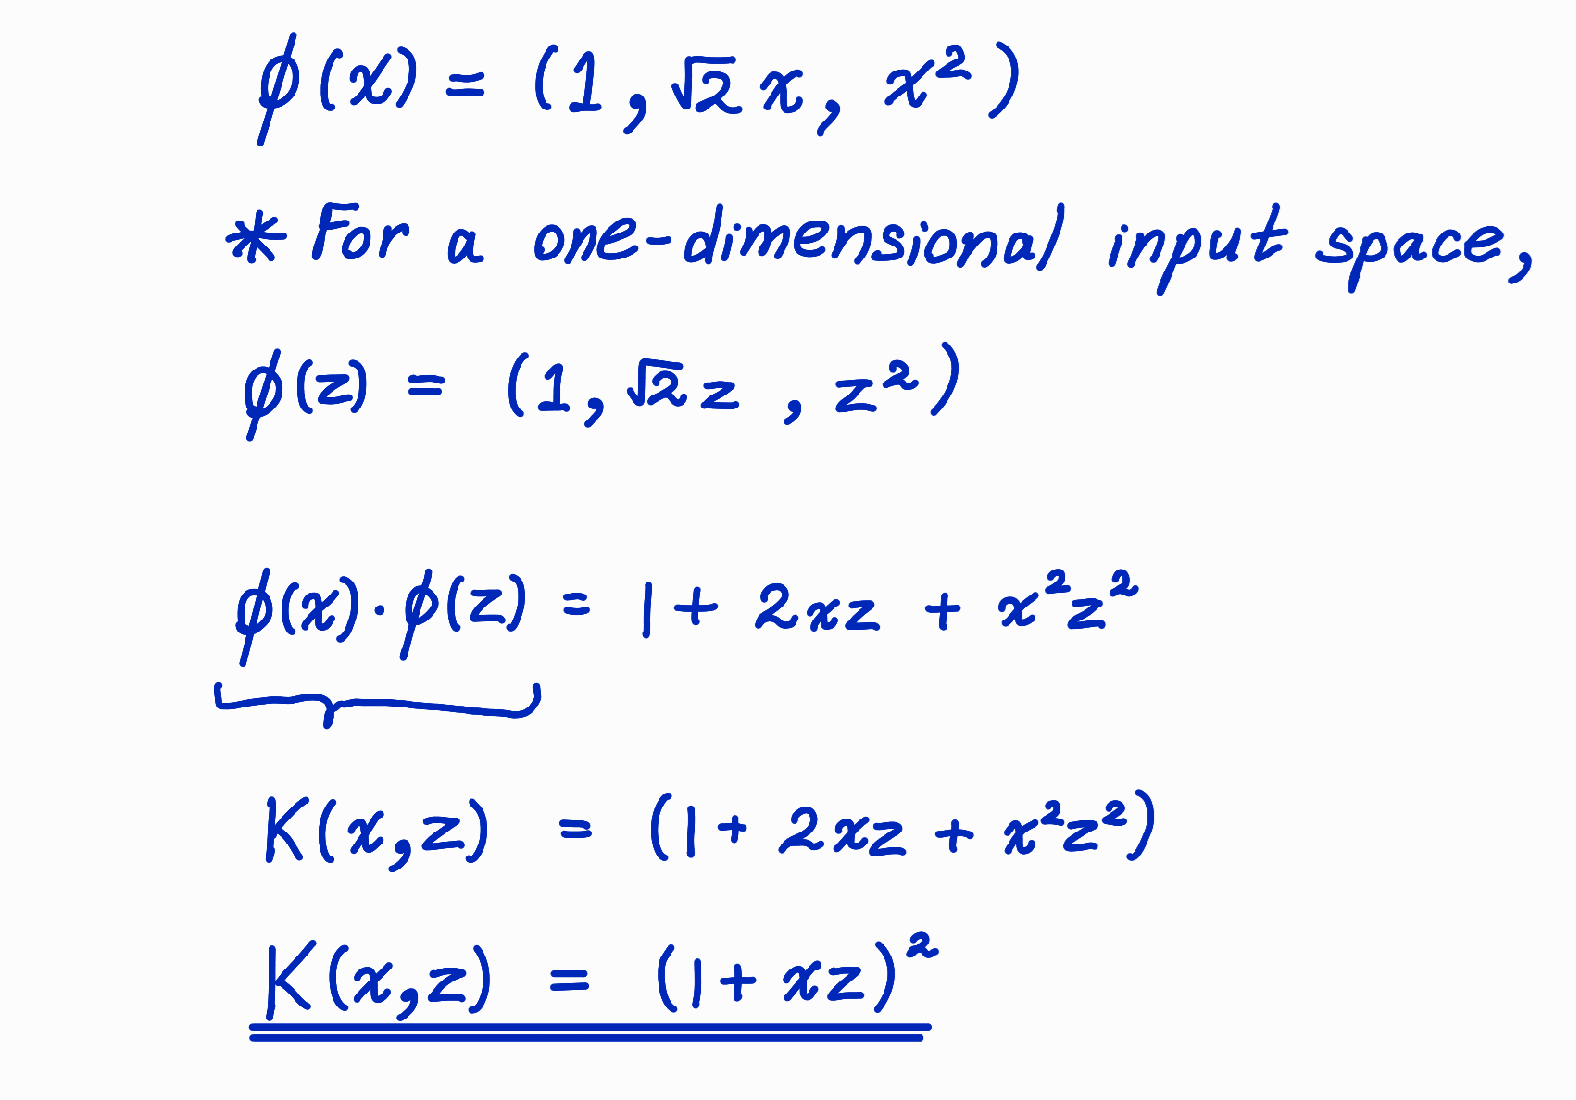 ϕ(x) = (1, √2 x, x²)
* For a one-dimensional input space,
ϕ(z) = (1, √2 z, z²)
ϕ(x)·ϕ(z) = 1 + 2xz + x²z²
K(x,z) = (1 + 2xz + x²z²)
K(x,z) = (1 + xz)²